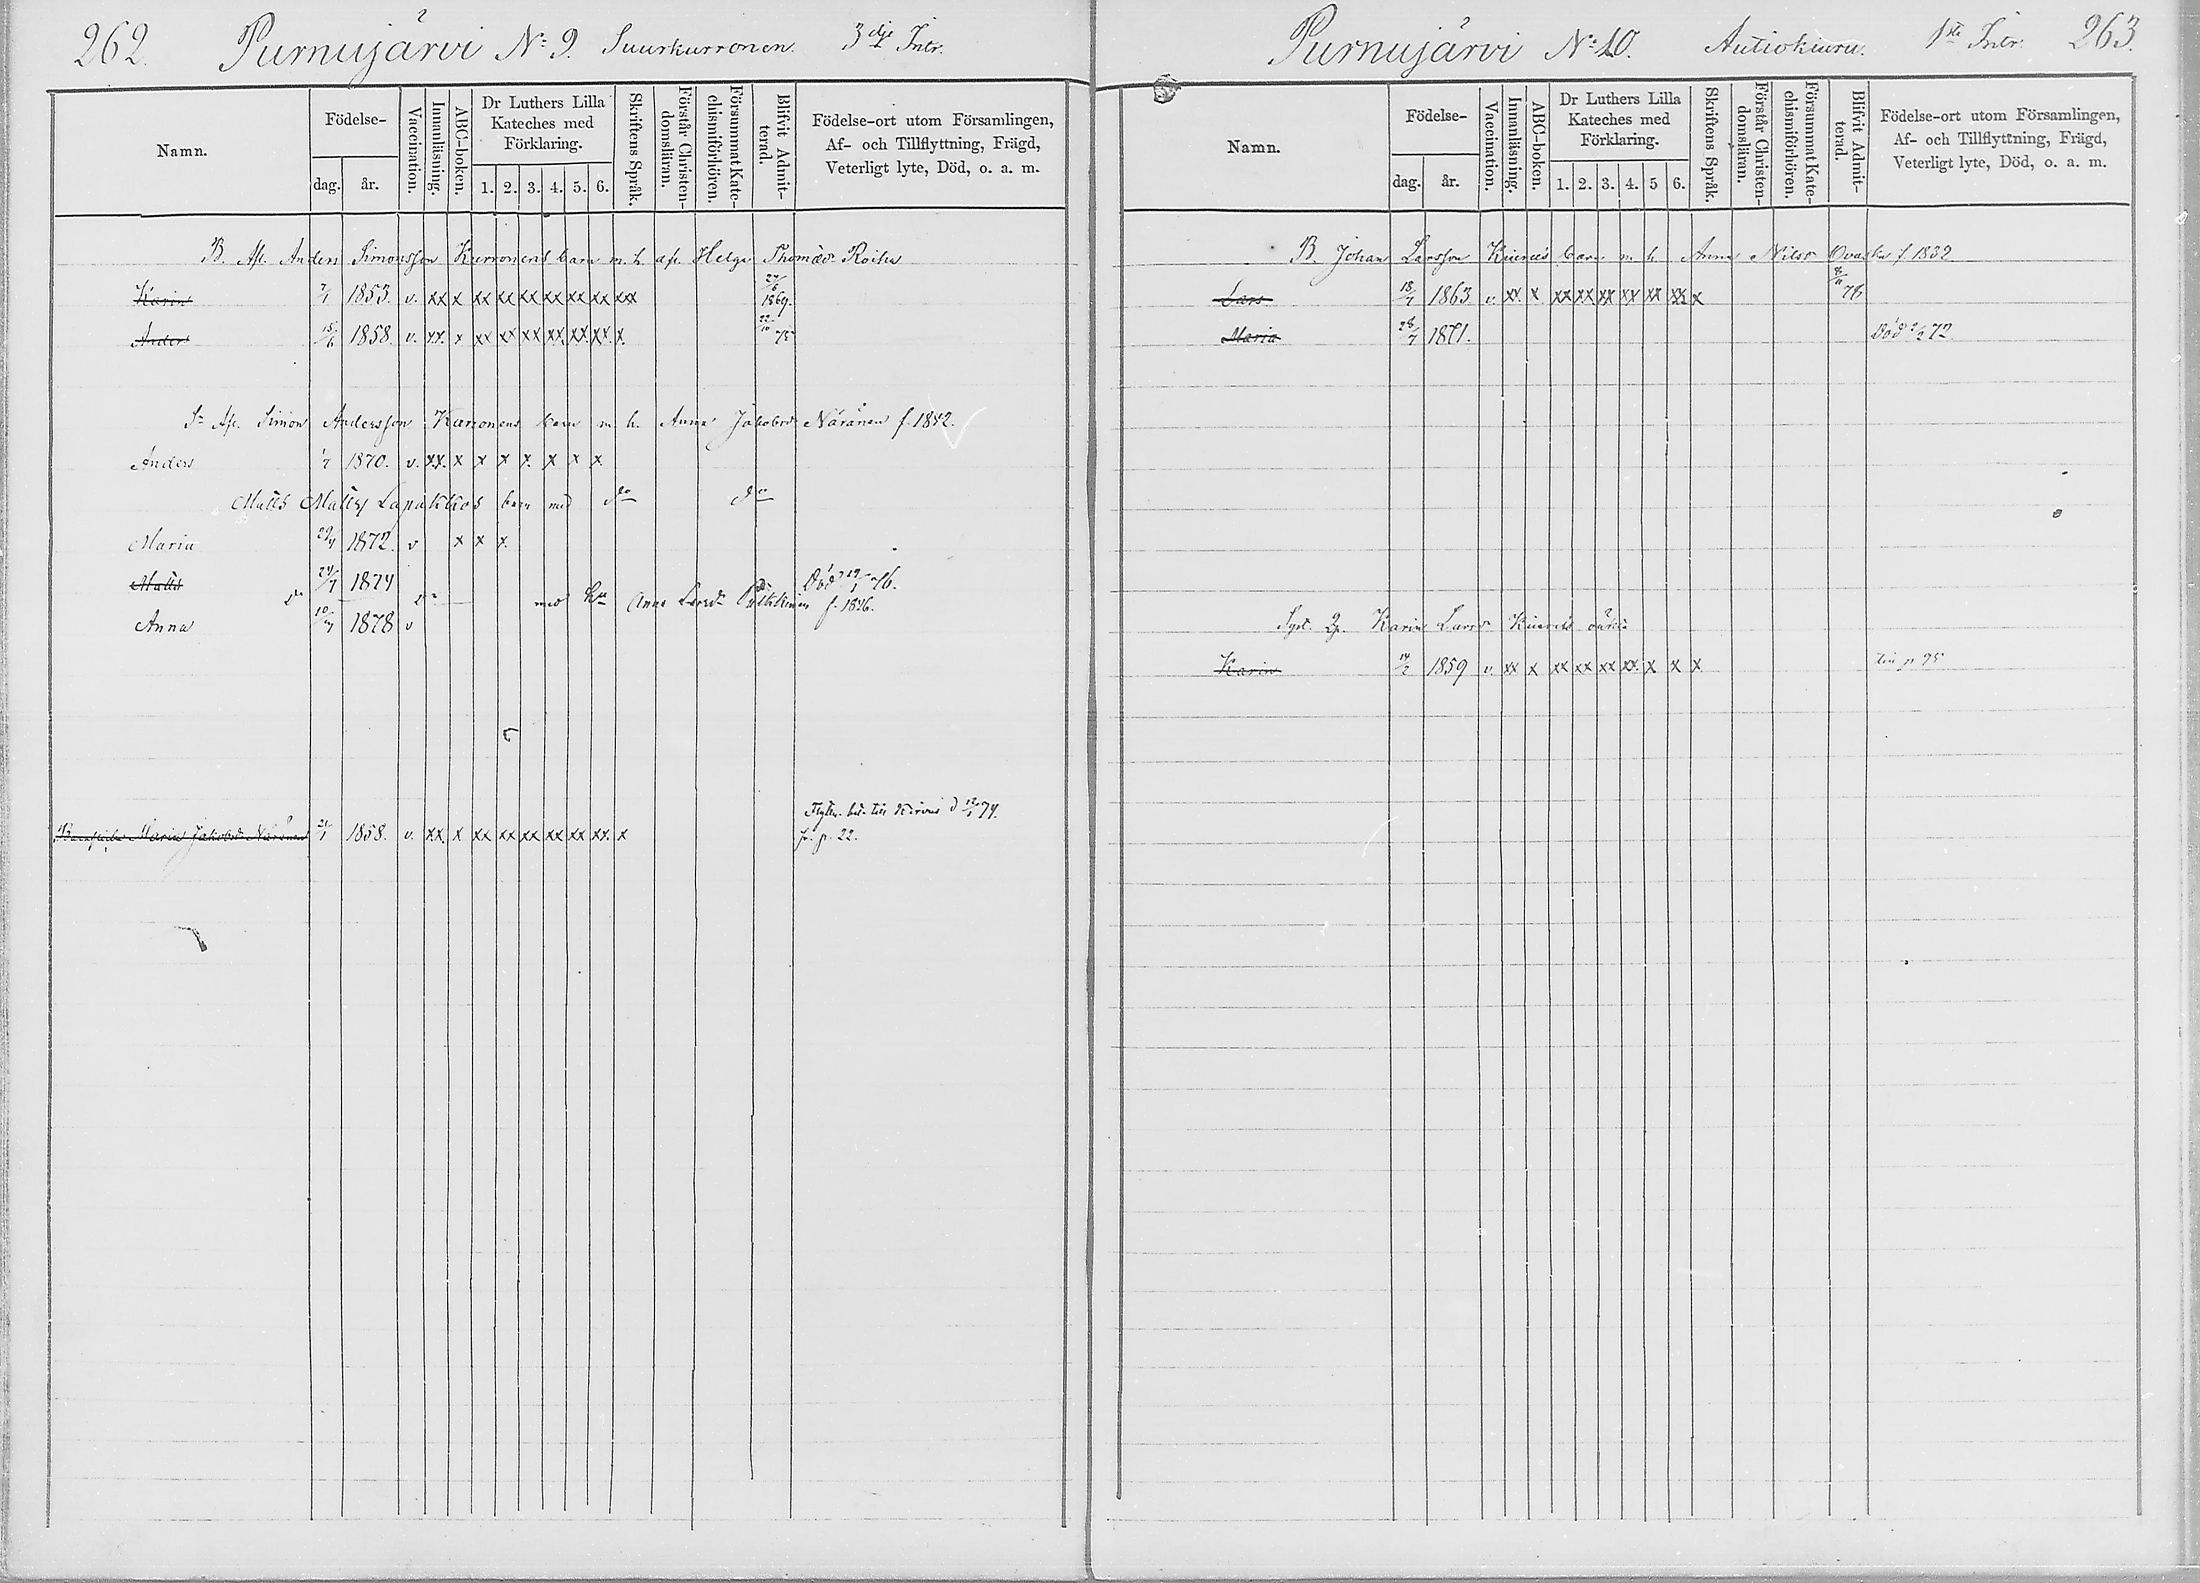 262. Purnujärvi No 9. Suurkurronen. 3dje Intr.
Namn.
Födelse-
dag.
år.
Vaccination.
Innanläsning.
ABC-boken.
Dr Luthers Lilla
Kateches med
Förklaring.
1. 2. 3. 4. 5. 6.
Skriftens Språk.
Förstår Christen-
domsläran.
Försummat Kate-
chismiförhören.
Blifvit Admit-
terad.
Födelse-ort utom Församlingen,
Af- och Tillflyttning, Frägd,
Veterligt lyte, Död, o. a. m.
B. Afl. Anders Simonsson Kurronens barn m. h. afl. Helga Thomaedr Roiha
Karin 7/1 1853. v. xx x xx xx xx xx xx xx xx 24/6 1869.
Anders 15/6 1858. v. xx. x xx xx xx xx xx xx. x. 22/10 75
Sn Afl. Simon Andersson Kurronens barn m. h. Anna Jakobsdr Näränen f. 1842.
Anders 1/7 1870. v. xx. x x x x. x x x
Matts Mattss Lapakkos barn med do do
Maria 29/4 1872. v x x x.
Matts 24/7 1874 Död 19/1 76.
do do med hu Anna Larsdr Pulkkinen f. 1846.
Anna 10/4 1878 v
Flyttn. bet. till Kirvus d 12/1 74.
Barnpiga Maria Jakobsdr Näränen 21/1 1858. v. xx. x xx xx xx xx xx xx. x fr. p. 22.
Purnujärvi No 10. Autiokiuru. 1sta Intr. 263.
Namn.
Födelse-
dag.
år.
Vaccination.
Innanläsning.
ABC-boken.
Dr Luthers Lilla
Kateches med
Förklaring.
1. 2. 3. 4. 5 6.
Skriftens Språk.
Förstår Christen-
domsläran.
Försummat Kate-
chismiförhören.
Blifvit Admit-
terad.
Födelse-ort utom Församlingen,
Af- och Tillflyttning, Frägd,
Veterligt lyte, Död, o. a. m.
B. Johan Larsson Kiurus barn m. h. Anna Nilsdr Ovaska f 1832
Lars 18/7 1863 v. xx. x xx xx xx xx xx xx. x 8/11 78
Maria 28/7 1871. Död 2/2 72.
Karin Larsdr Kiurus
Karin 14/2 1859 v. xx x xx xx xx xx. x x x till p. 95